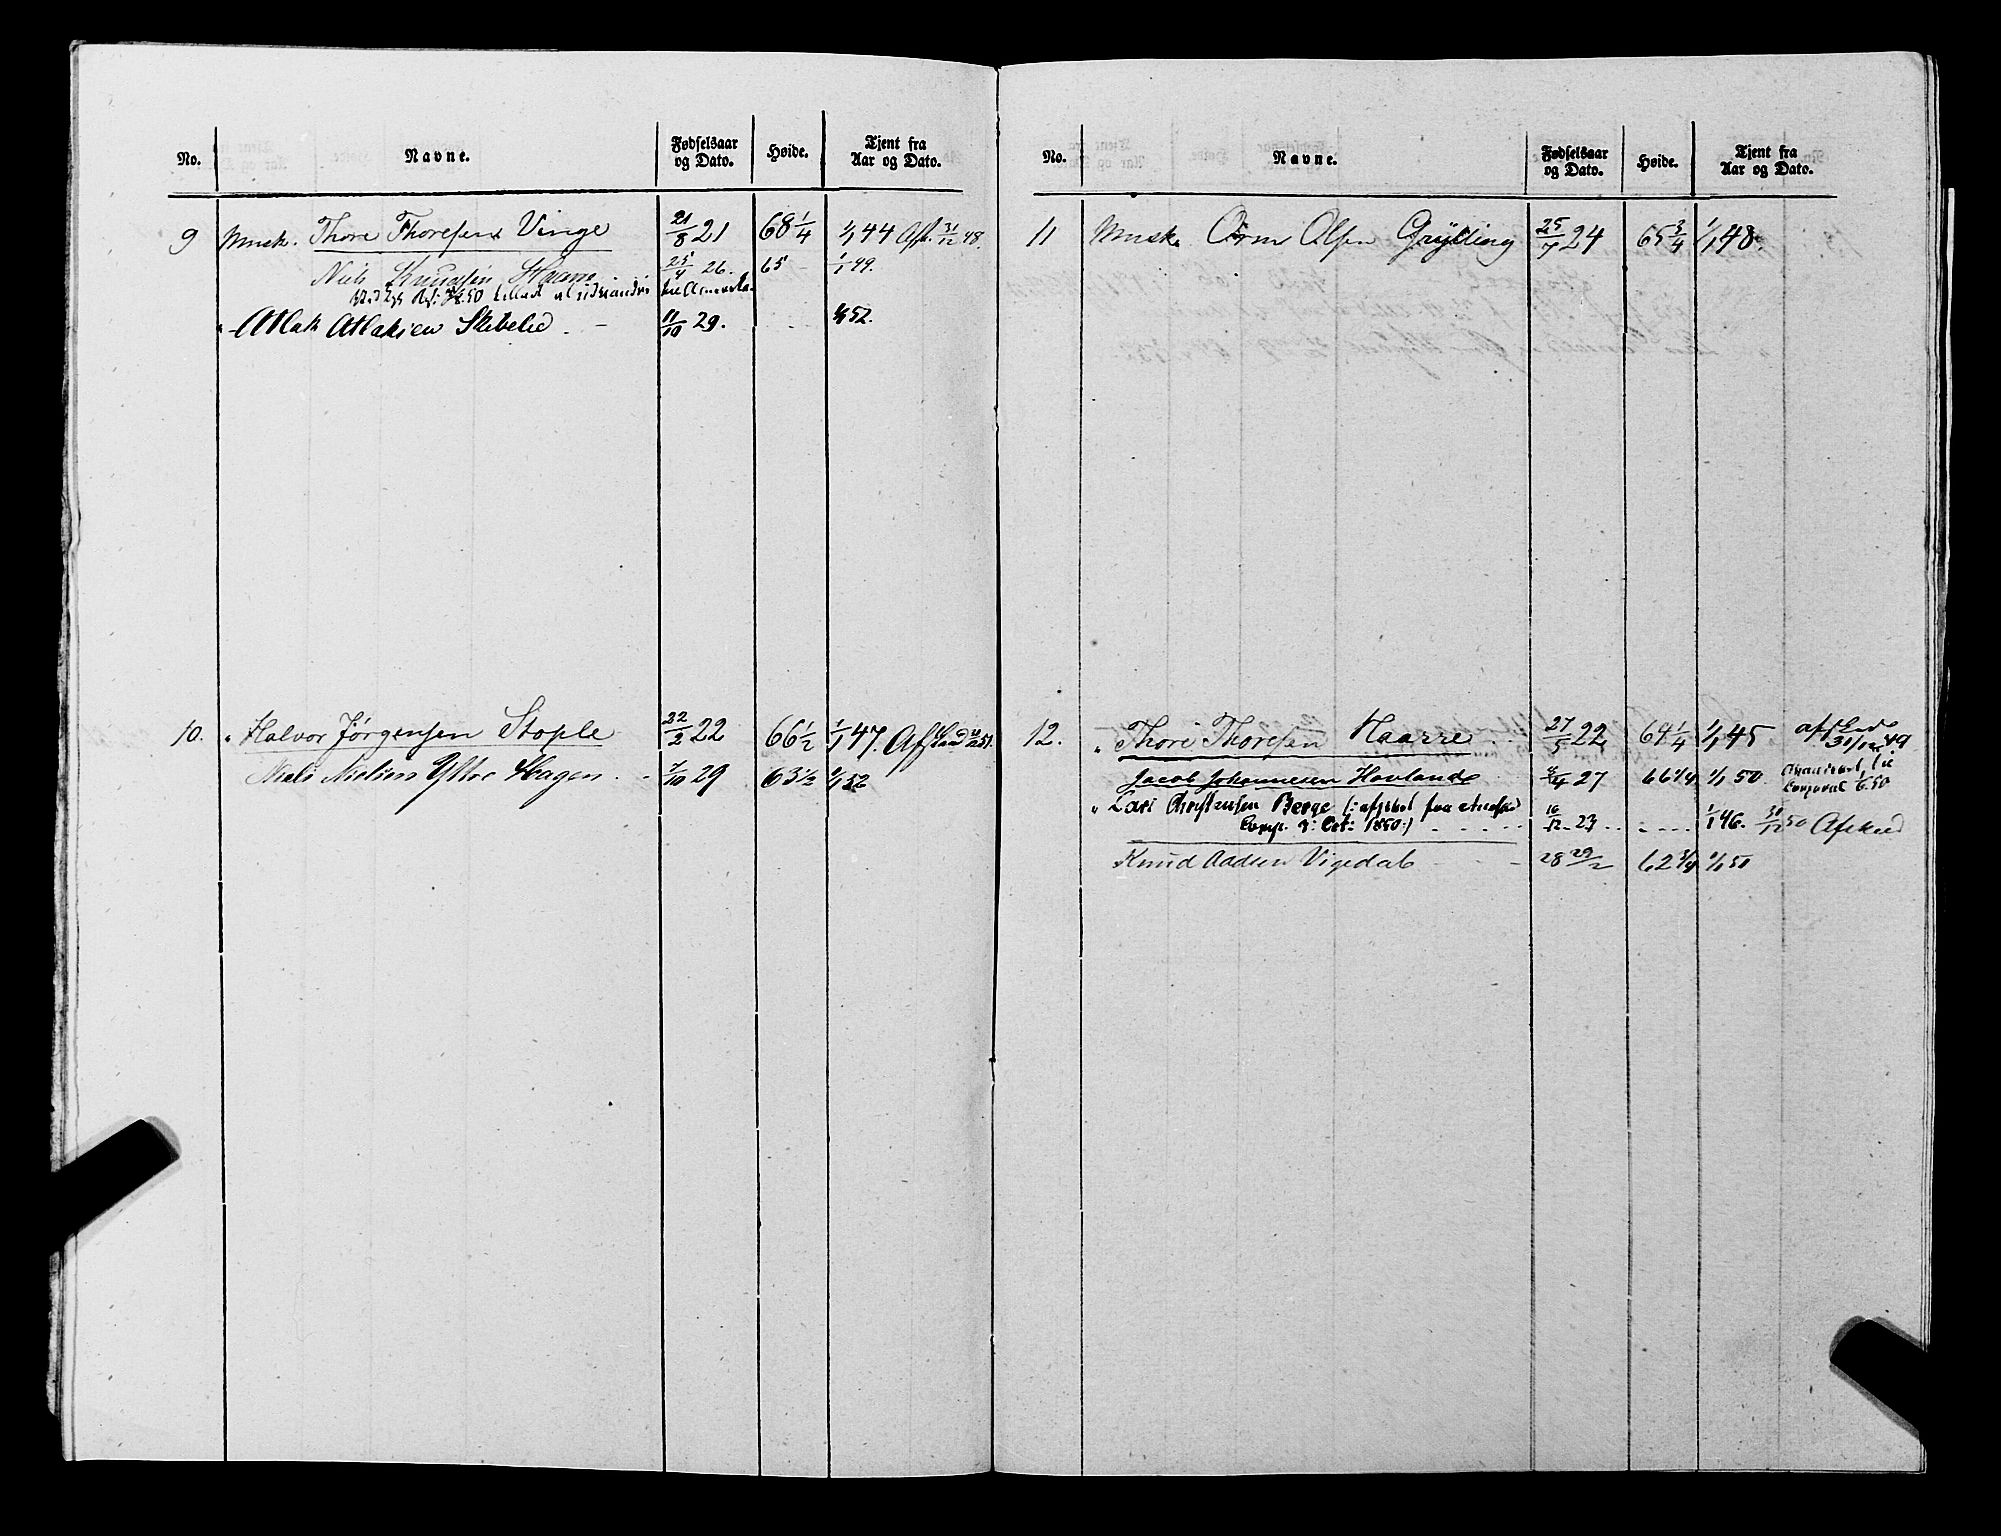 No. Navne. Fødselsaar og Dato. Høide. Tjent fra Aar og Dato.
9 Musk. Thore Thoresen Vinge 21/8 21 68 1/4 1/1 44 Afsk. 31/12 48.
Niels Knudsen Haarre 25/4 26. 65 1/1 49.
til America
" Atlak Atlaksen Skebelid. - 11/10 29. 1/1 52.
10. " Halvor Jørgensen Stople 22/2 22 66 1/2 1/1 47. Afskeed 51.
Niels Nielsen Ytre Hagen. - 7/10 29 63 1/2 1/1 52
No. Navne. Fødselsaar og Dato. Høide. Tjent fra Aar og Dato.
11 Musk. Orm Olsen Grytting 25/7 24 65 3/4 1/1 48.
12. " Thore Thoresen Haarre 27/5 22 64 1/4 1/1 45 afskeed 31/12 49
Jacob Johannesen Hovland 27 66 1/4 1/1 50 Avanceret til Corporal 50
" Lars Christensen Berge (: afgivet fra
Comp. Oct: 1850 :) 16/12 23 1/1 46. 31/12 50 Afskeed
Knud Aadsen Vigedal 28 29/2 62 3/4 1/1 51